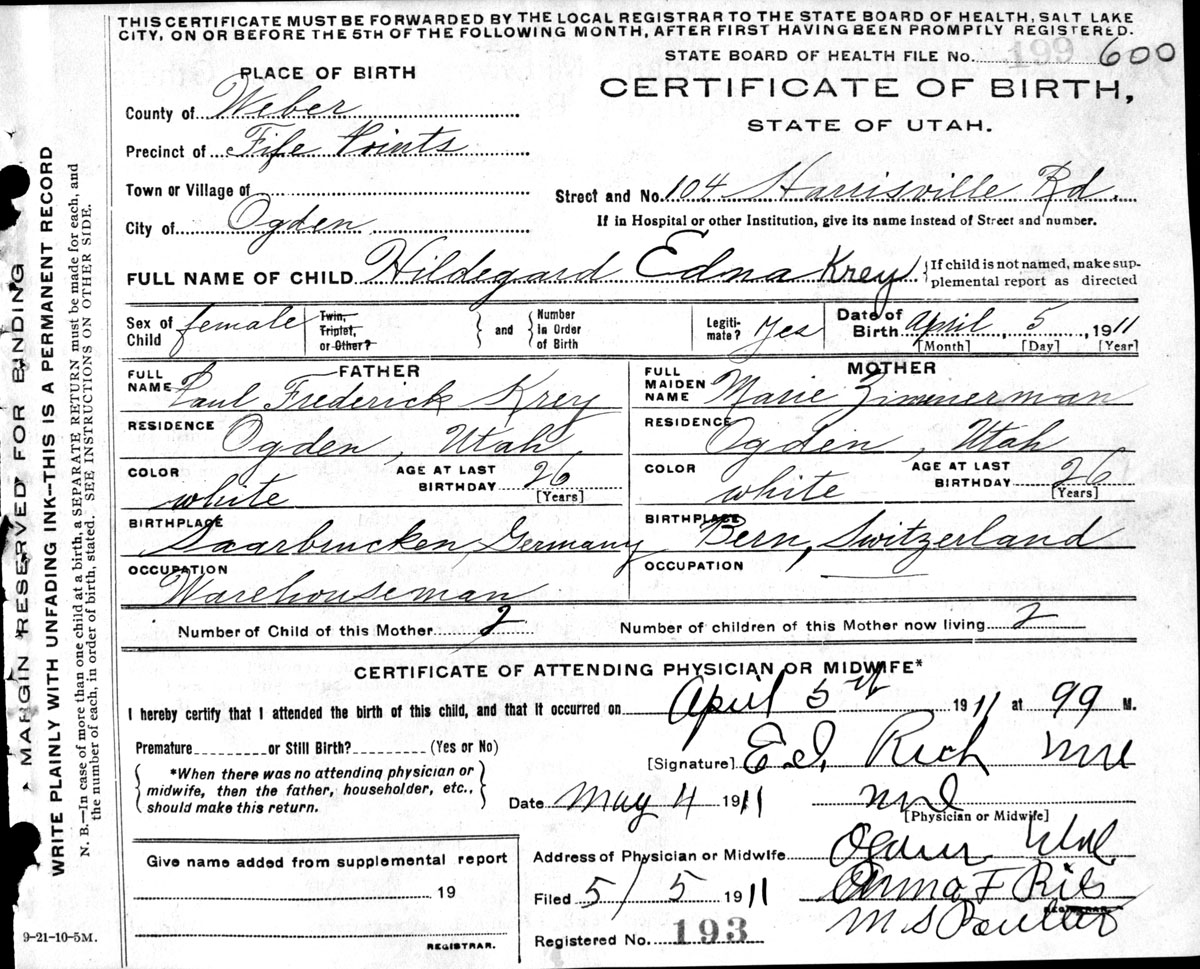 THIS CERTIFICATE MUST BE FORWARDED BY THE LOCAL REGISTRAR TO THE STATE BOARD OF HEALTH, SALT LAKE
CITY, ON OR BEFORE THE 5TH OF THE FOLLOWING MONTH, AFTER FIRST HAVING BEEN PROMPTLY REGISTERED.
STATE BOARD OF HEALTH FILE No. 199 600
PLACE OF BIRTH
CERTIFICATE OF BIRTH,
STATE OF UTAH.
County of Weber
Precinct of Fife Points
Town or Village of
Street and No. 104 Harrisville Rd.
City of Ogden
If in Hospital or other Institution, give its name instead of Street and number.
FULL NAME OF CHILD Hildegard Edna Krey
If child is not named, make sup-
plemental report as directed
Sex of Child female
Twin, Triplet, or Other?
and Number in Order of Birth
Legiti-mate? Yes
Date of Birth April 5, 1911
[Month] [Day] [Year]
FATHER
FULL NAME Paul Frederick Krey
RESIDENCE Ogden, Utah
COLOR white
AGE AT LAST BIRTHDAY 26
[Years]
BIRTHPLACE Saarbrucken, Germany
OCCUPATION Warehouseman
MOTHER
FULL MAIDEN NAME Marie Zimmerman
RESIDENCE Ogden, Utah
COLOR white
AGE AT LAST BIRTHDAY 26
[Years]
BIRTHPLACE Bern, Switzerland
OCCUPATION
Number of Child of this Mother 2
Number of children of this Mother now living 2
CERTIFICATE OF ATTENDING PHYSICIAN OR MIDWIFE*
I hereby certify that I attended the birth of this child, and that it occurred on April 5th 1911 at 99 M.
Premature or Still Birth? (Yes or No)
[Signature] E. I. Rich MD
*When there was no attending physician or
midwife, then the father, householder, etc.,
should make this return.
Date May 4 1911 MD
[Physician or Midwife]
Give name added from supplemental report
19
REGISTRAR.
Address of Physician or Midwife Ogden Utah
Filed 5/5 1911
REGISTRAR.
Registered No. 193
9-21-10-5M.
MARGIN RESERVED FOR BINDING
WRITE PLAINLY WITH UNFADING INK—THIS IS A PERMANENT RECORD
N. B.—In case of more than one child at a birth, a SEPARATE RETURN must be made for each, and
the number of each, in order of birth, stated. SEE INSTRUCTIONS ON OTHER SIDE.